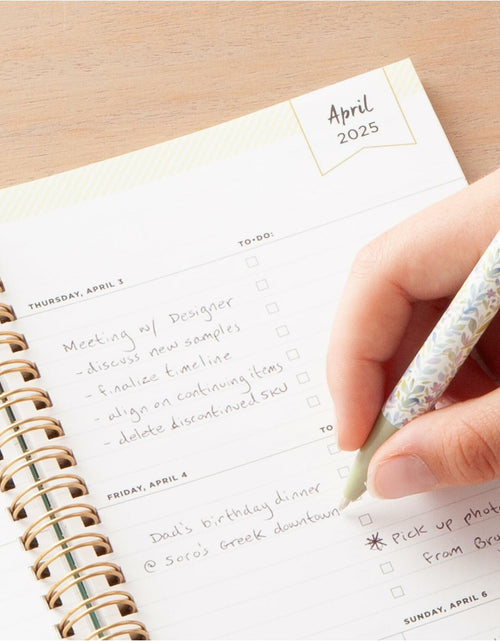 April
2025
THURSDAY, APRIL 3
TO-DO:
Meeting w/ Designer
- discuss new samples
- finalize timeline
- align on continuing items
- delete discontinued SKU
FRIDAY, APRIL 4
TO
Dad's birthday dinner
@ Soro's Greek downtown
* Pick up photo
from Bru
SUNDAY, APRIL 6